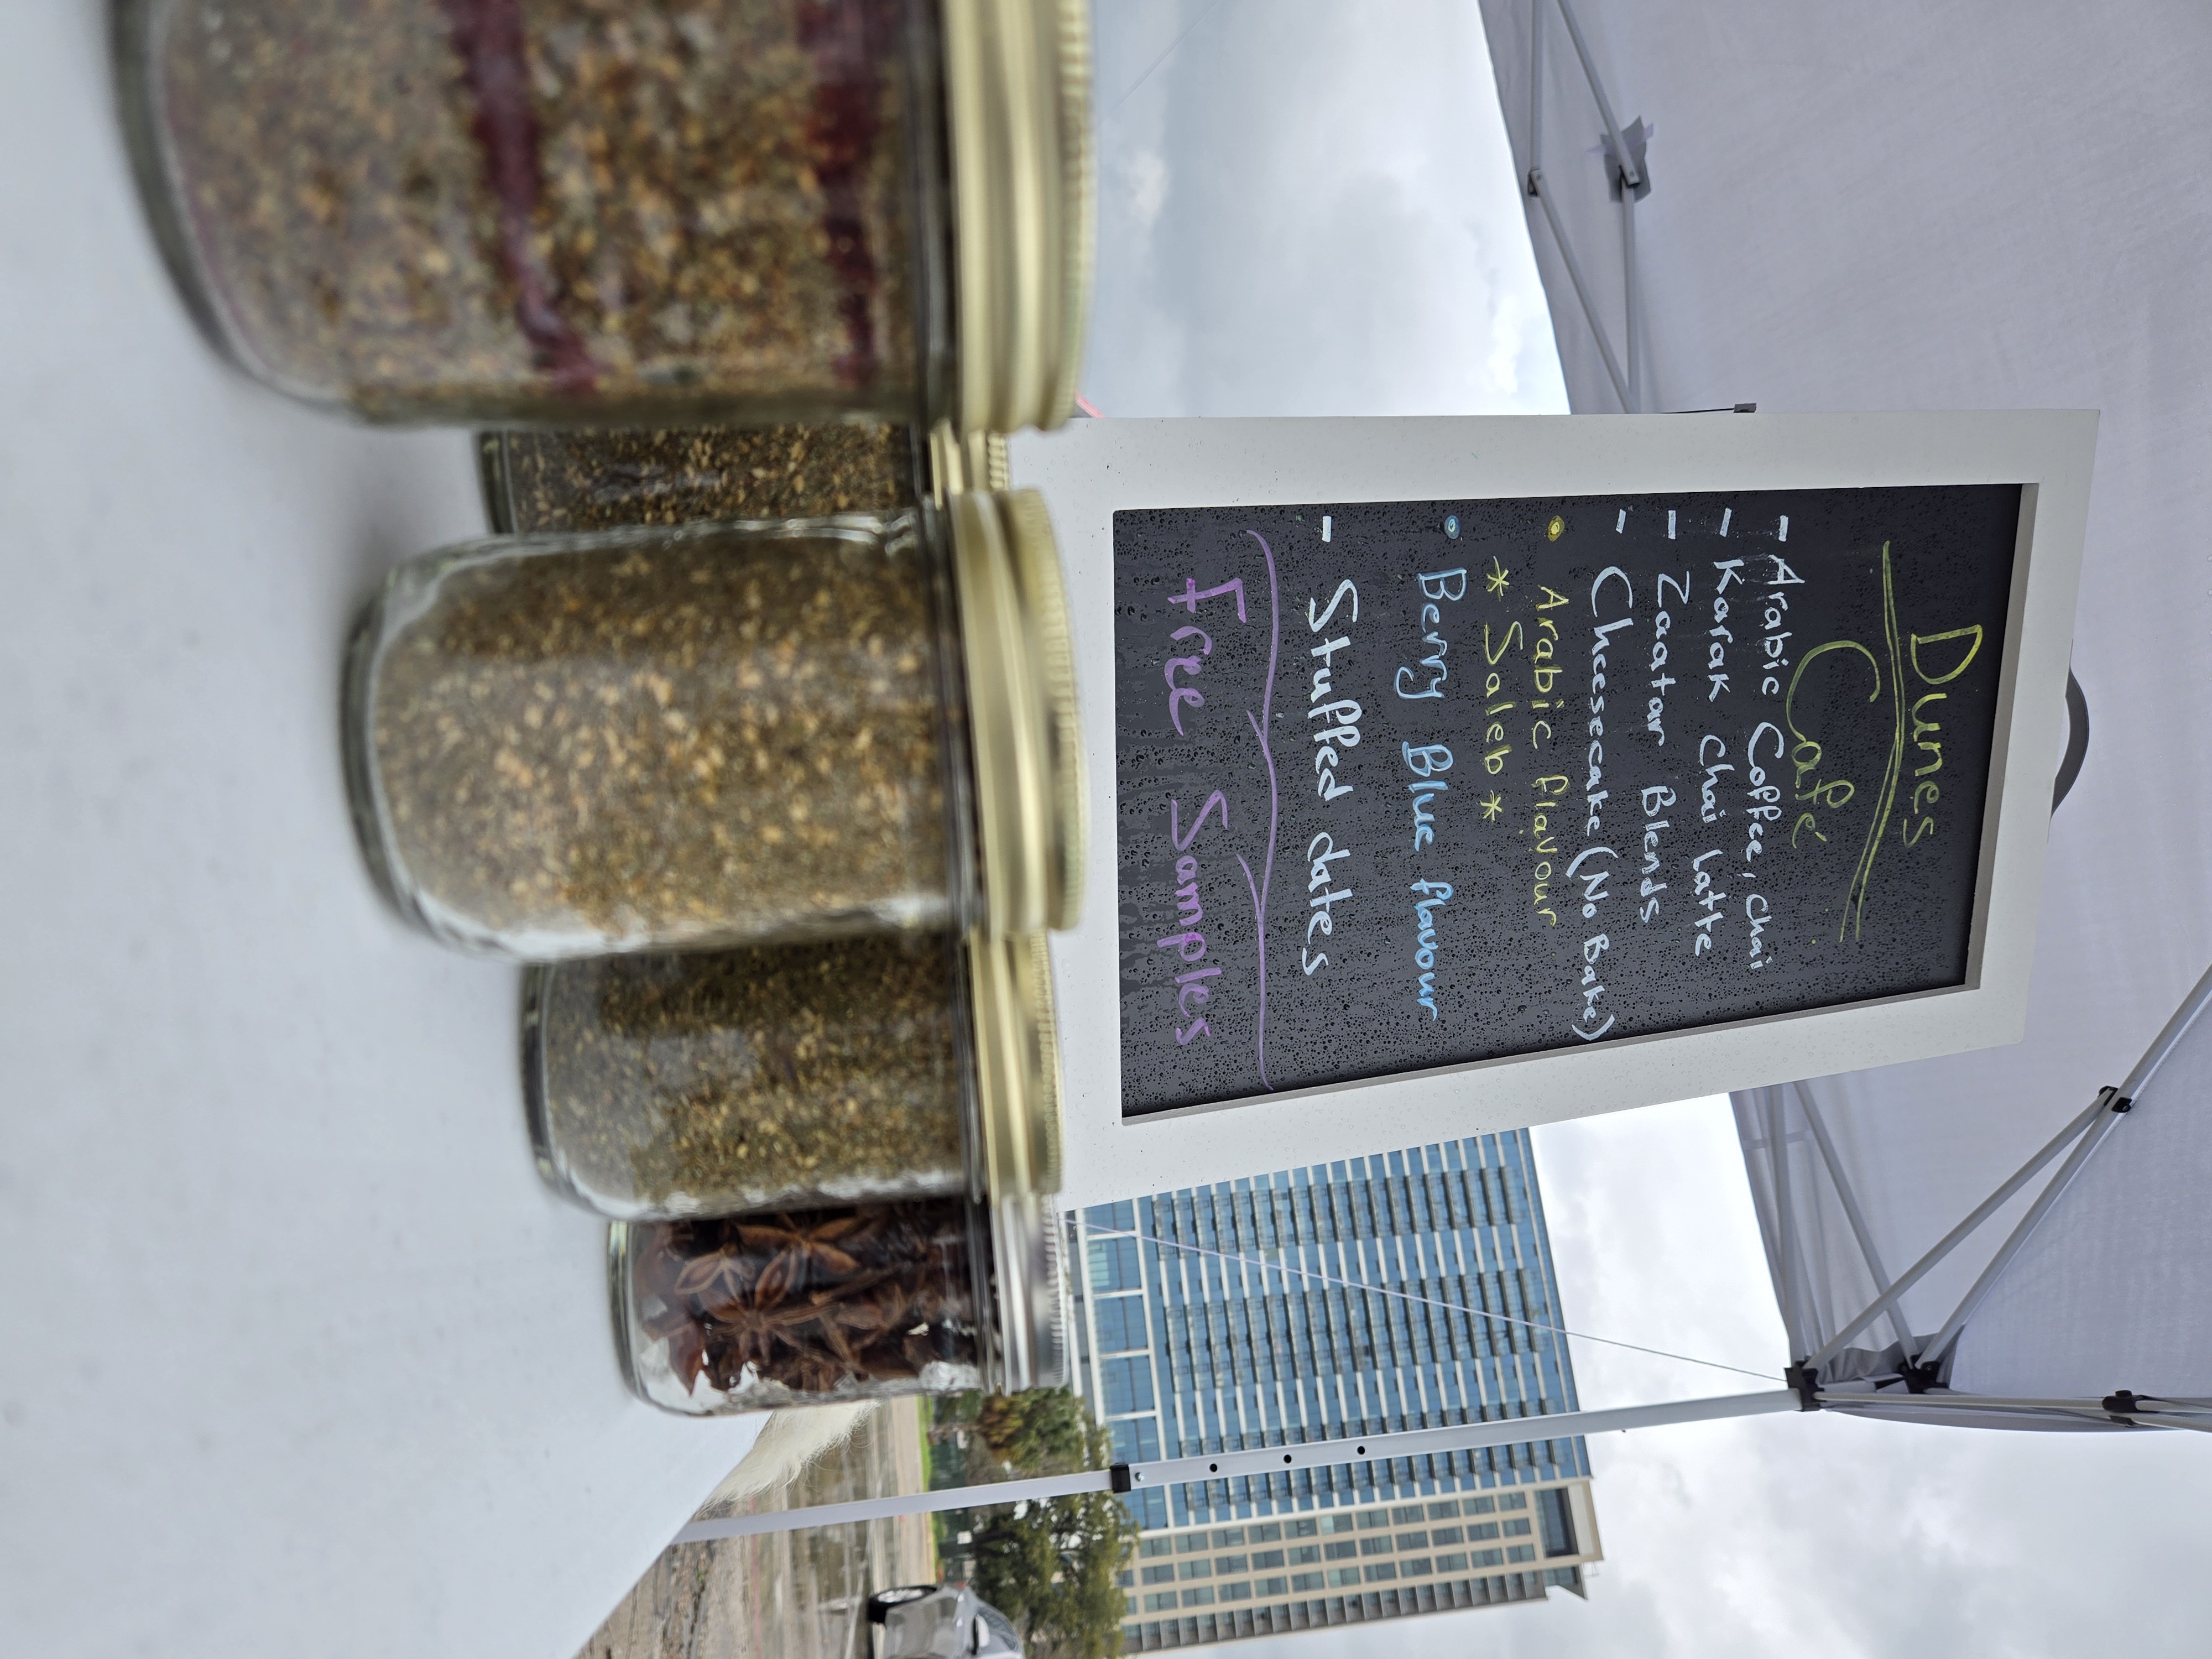 Dunes
Café
- Arabic Coffee, chai
- Karak chai latte
- Zaatar Blends
- Cheesecake (No Bake)
• Arabic flavour
* Saleb *
• Berry Blue flavour
- Stuffed dates
Free Samples